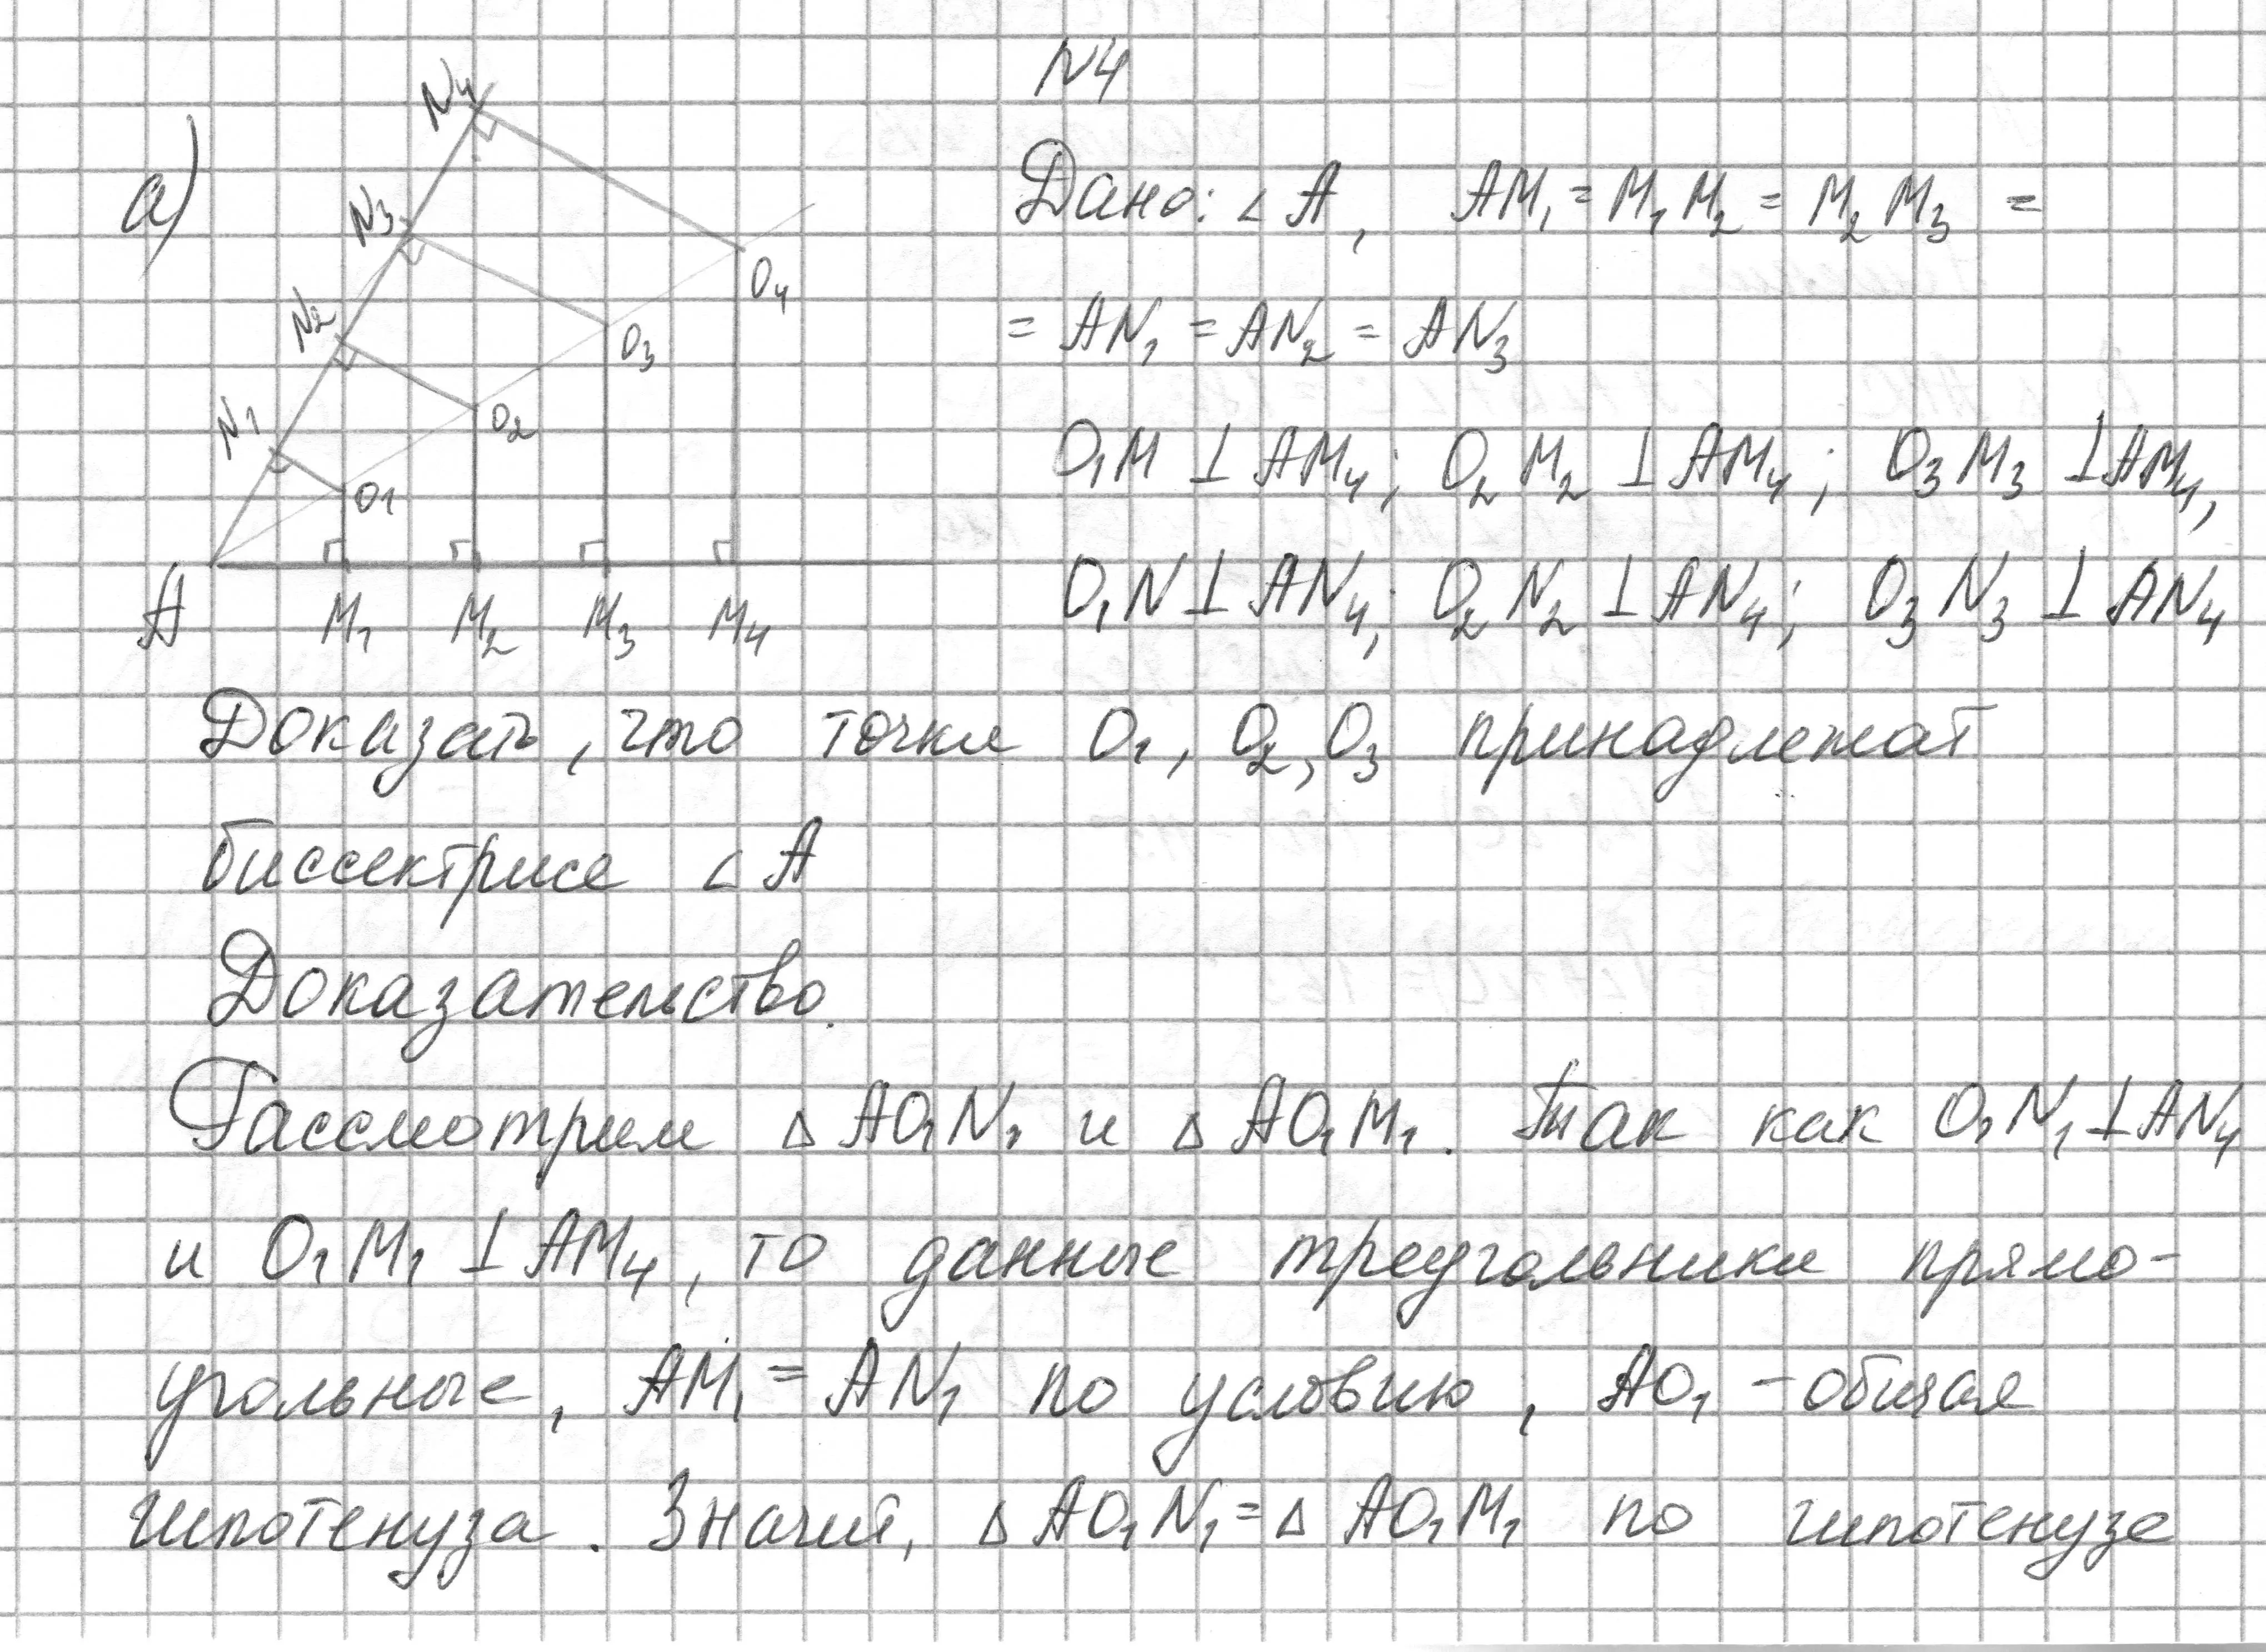 N4
а)
N4
N3
N2
N1
O1
O2
O3
O4
A
M1
M2
M3
M4
Дано: ∠A, AM₁ = M₁M₂ = M₂M₃ =
= AN₁ = AN₂ = AN₃
O₁M ⊥ AM₄; O₂M₂ ⊥ AM₄; O₃M₃ ⊥ AM₄,
O₁N ⊥ AN₄; O₂N₂ ⊥ AN₄; O₃N₃ ⊥ AN₄
Доказать, что точки O₁, O₂, O₃ принадлежат
биссектрисе ∠A
Доказательство.
Рассмотрим △AO₁N₁ и △AO₁M₁. Так как O₁N₁ ⊥ AN₄
и O₁M₁ ⊥ AM₄, то данные треугольники прямо-
угольные, AM₁ = AN₁ по условию, AO₁ - общая
гипотенуза. Значит, △AO₁N₁ = △AO₁M₁ по гипотенузе